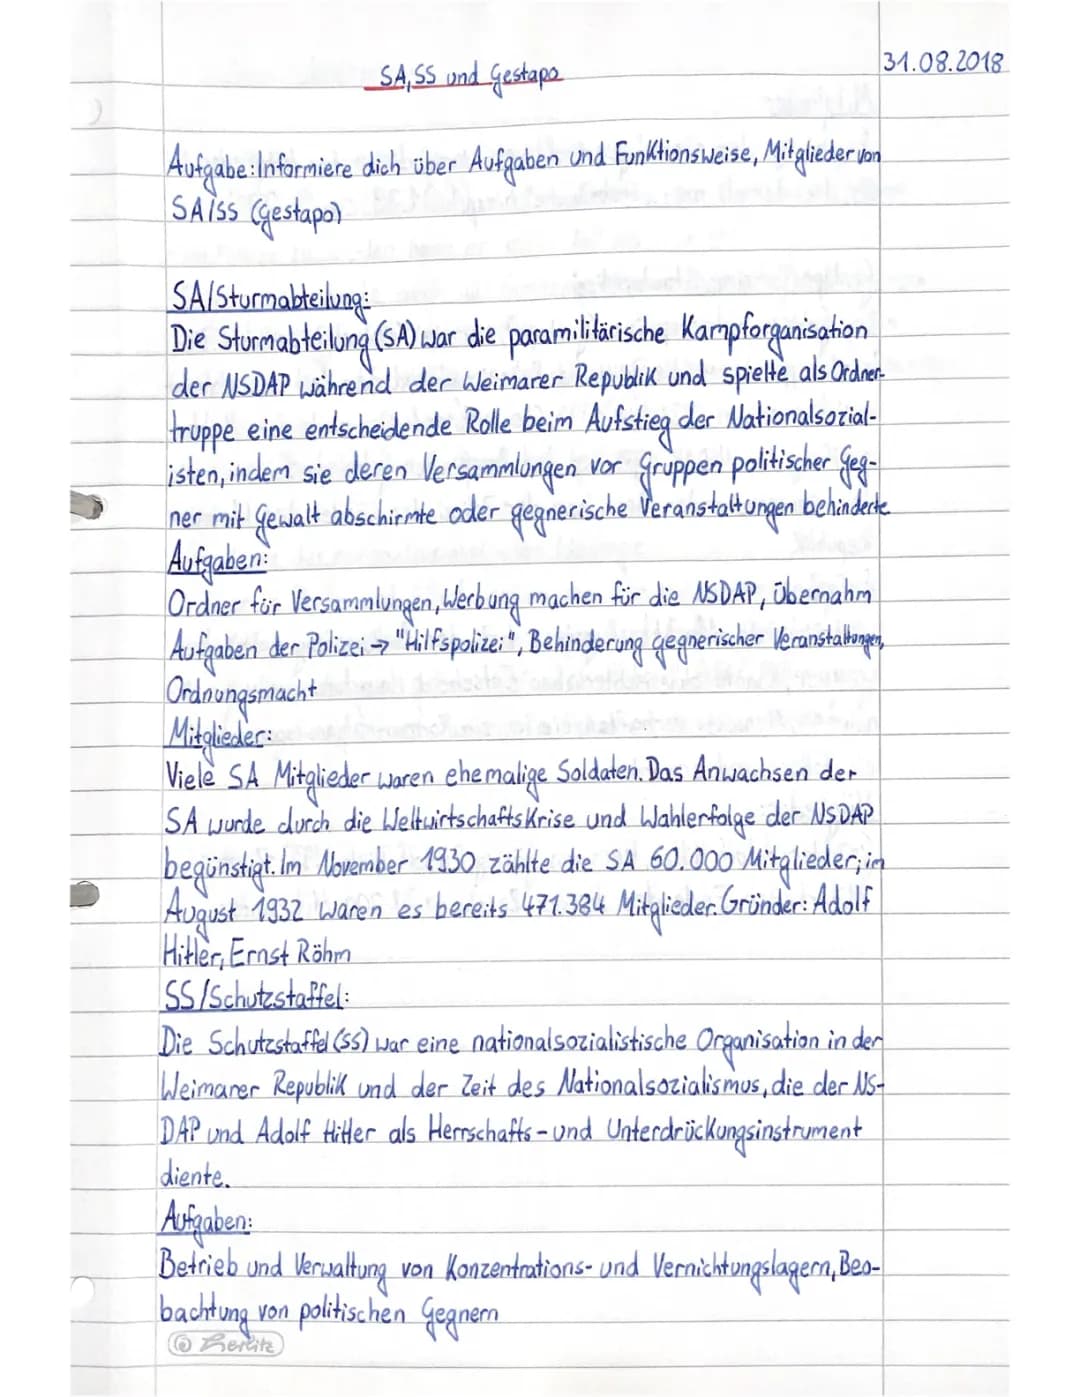 SA, SS und Gestapo
31.08.2018
Aufgabe: Informiere dich über Aufgaben und Funktionsweise, Mitglieder von
SA/SS (Gestapo)
SA/Sturmabteilung:
Die Sturmabteilung (SA) war die paramilitärische Kampforganisation
der NSDAP während der Weimarer Republik und spielte als Ordner-
truppe eine entscheidende Rolle beim Aufstieg der Nationalsozial-
isten, indem sie deren Versammlungen vor Gruppen politischer Geg-
ner mit Gewalt abschirmte oder gegnerische Veranstaltungen behinderte
Aufgaben:
Ordner für Versammlungen, Werbung machen für die NSDAP, übernahm
Aufgaben der Polizei → "Hilfspolizei", Behinderung gegnerischer Veranstaltungen,
Ordnungsmacht
Mitglieder:
Viele SA Mitglieder waren ehemalige Soldaten. Das Anwachsen der
SA wurde durch die Weltwirtschaftskrise und Wahlerfolge der NSDAP
begünstigt. Im November 1930 zählte die SA 60.000 Mitglieder; im
August 1932 waren es bereits 471.384 Mitglieder. Gründer: Adolf
Hitler, Ernst Röhm
SS/Schutzstaffel:
Die Schutzstaffel (SS) war eine nationalsozialistische Organisation in der
Weimarer Republik und der Zeit des Nationalsozialismus, die der NS-
DAP und Adolf Hitler als Herrschafts- und Unterdrückungsinstrument
diente.
Aufgaben:
Betrieb und Verwaltung von Konzentrations- und Vernichtungslagern, Beo-
bachtung von politischen Gegnern
Herlitz